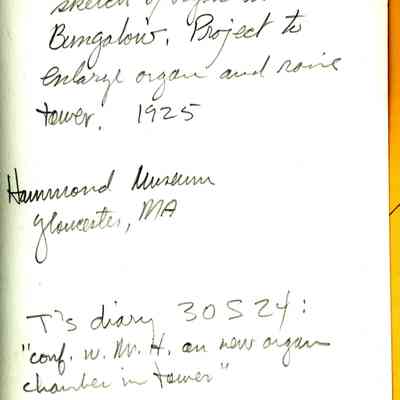 sketch of organ in
Bungalow. Project to
enlarge organ and raise
tower. 1925
Hammond Museum
Gloucester, MA
T's diary 30 S 24:
"conf. w. Mr. H. on new organ
chamber in tower"